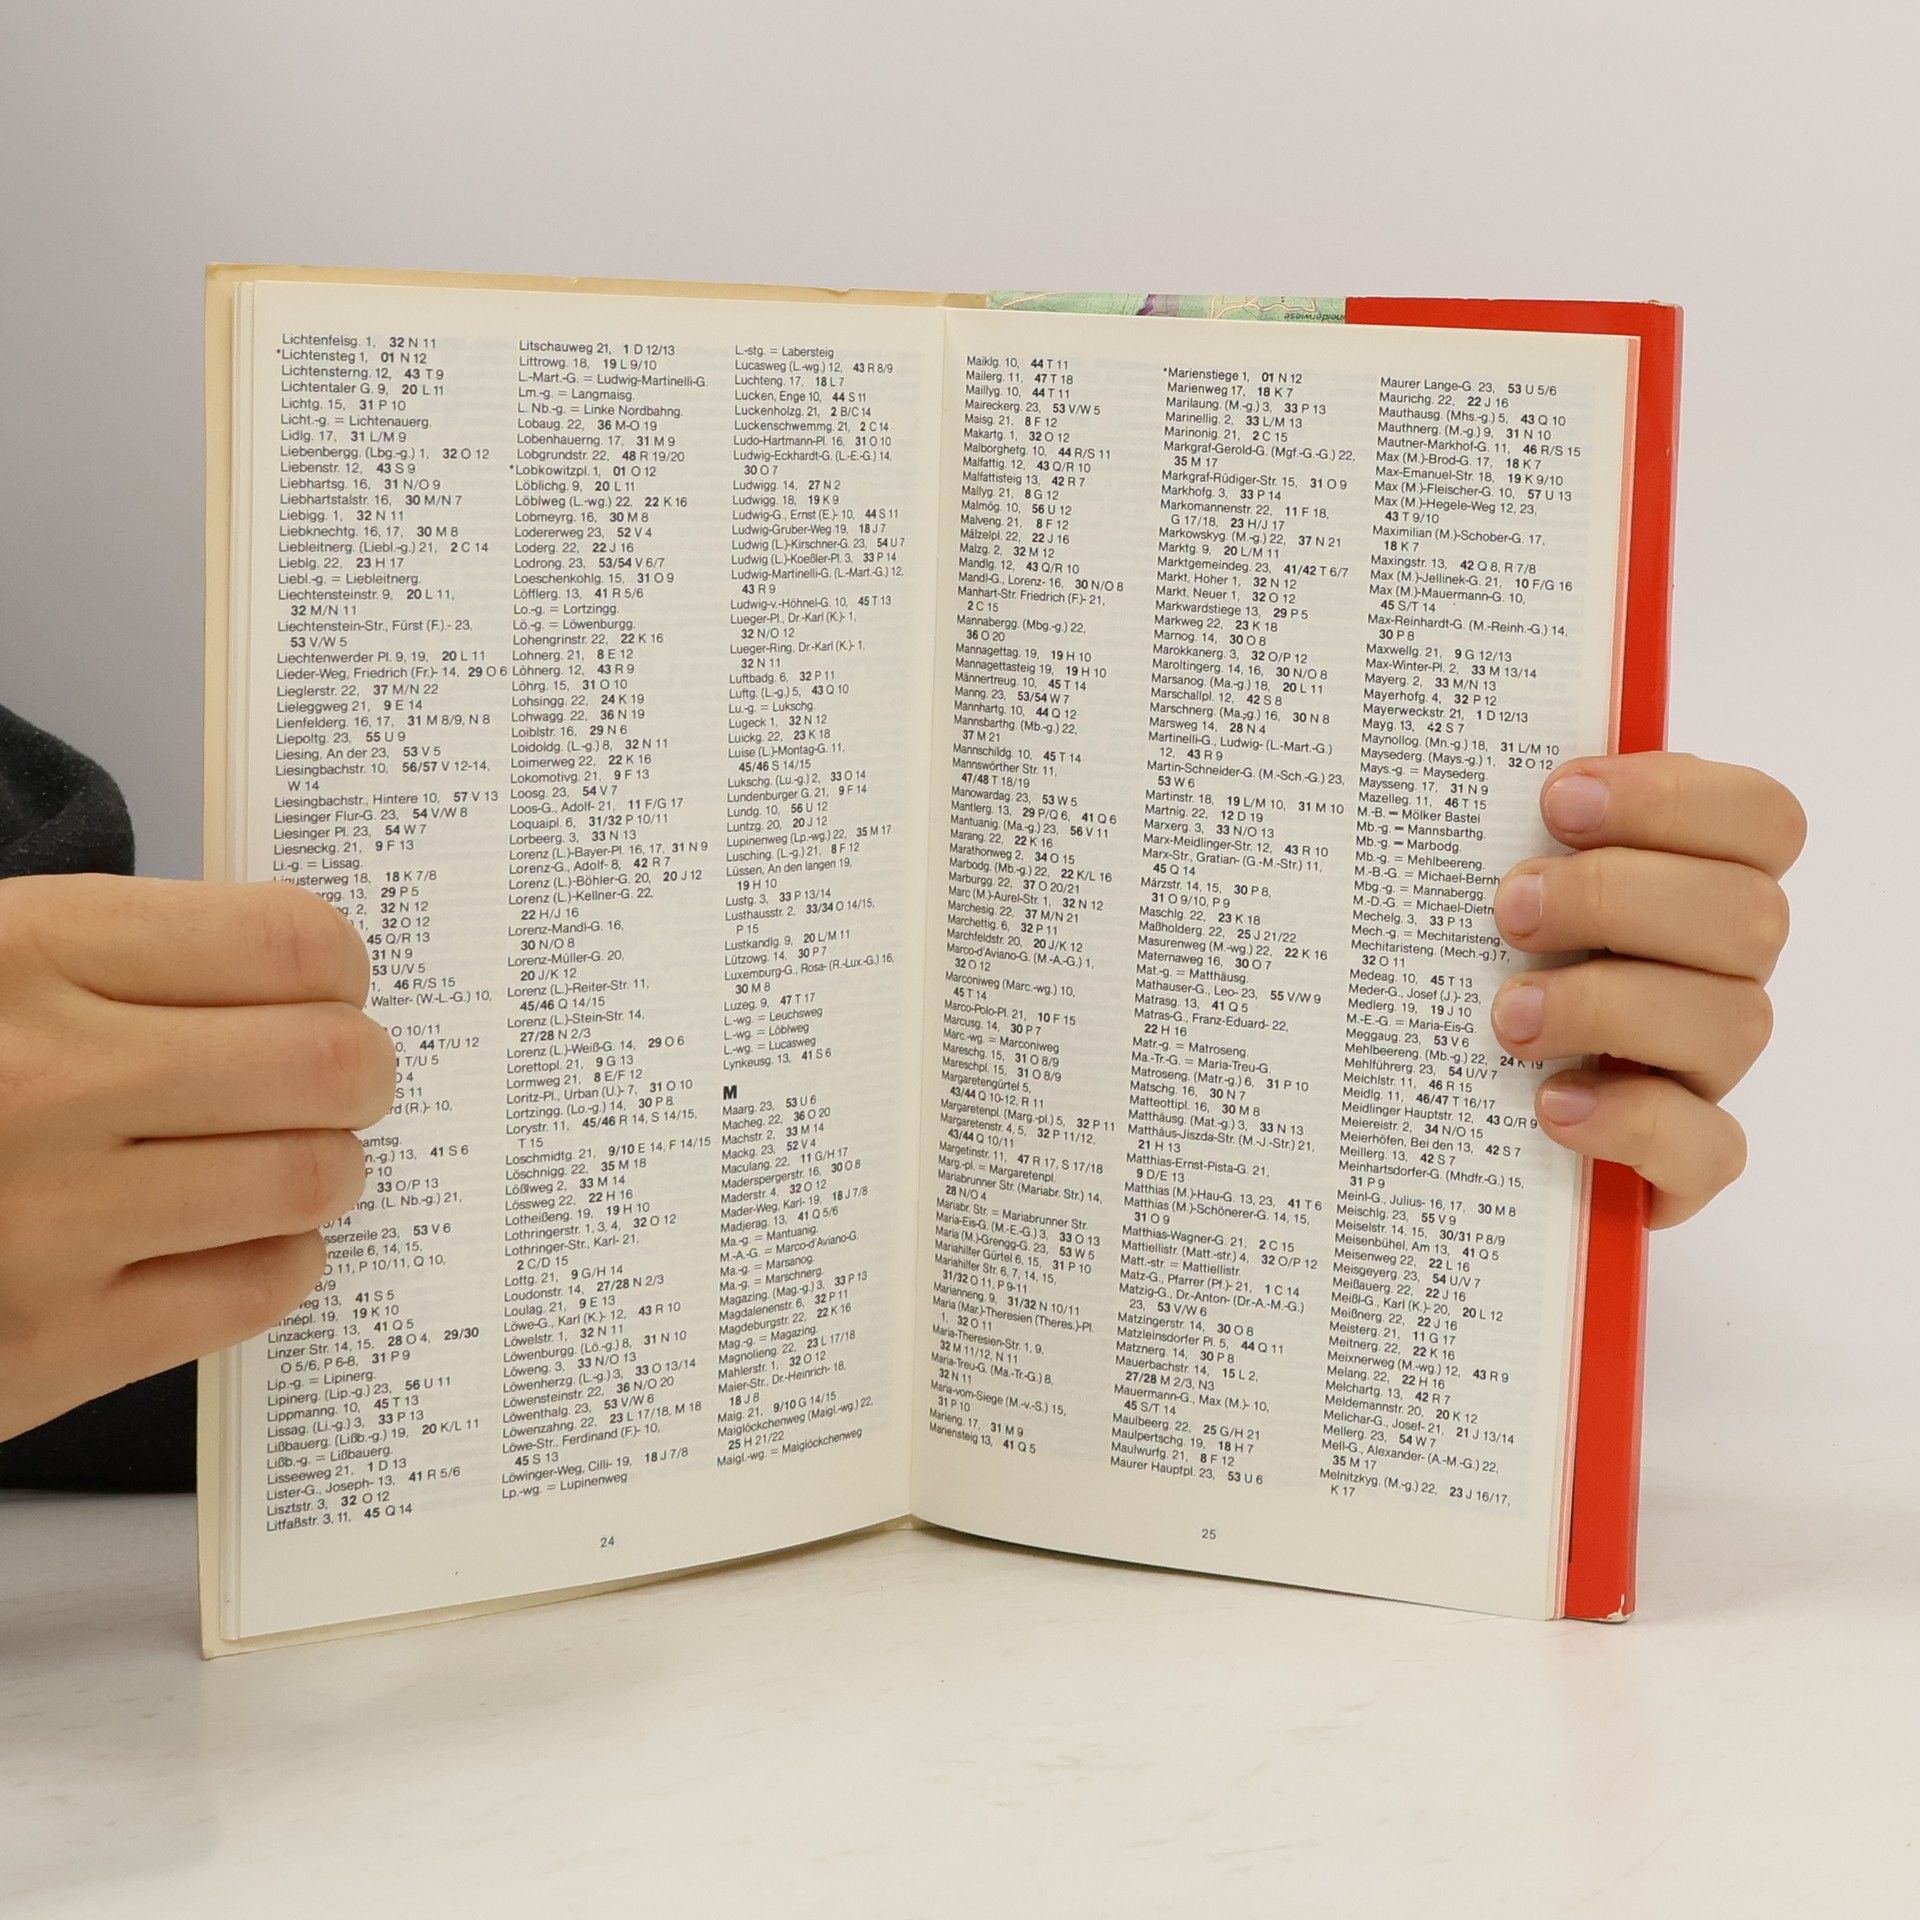 neiderwiese
Lichtenfelsg. 1, 32 N 11
*Lichtensteg 1, 01 N 12
Lichtensterng. 12, 43 T 9
Lichtentaler G. 9, 20 L 11
Lichtg. 15, 31 P 10
Licht.-g. = Lichtenauerg.
Lidlg. 17, 31 L/M 9
Liebenbergg. (Lbg.-g.) 1, 32 O 12
Liebenstr. 12, 43 S 9
Liebhartsg. 16, 31 N/O 9
Liebhartstalstr. 16, 30 M/N 7
Liebigg. 1, 32 N 11
Liebknechtg. 16, 17, 30 M 8
Liebleitnerg. (Liebl.-g.) 21, 2 C 14
Lieblg. 22, 23 H 17
Liebl.-g. = Liebleitnerg.
Liechtensteinstr. 9, 20 L 11,
32 M/N 11
Liechtenstein-Str., Fürst (F.)- 23,
53 V/W 5
Liechtenwerder Pl. 9, 19, 20 L 11
Lieder-Weg, Friedrich (Fr.)- 14, 29 O 6
Lieglerstr. 22, 37 M/N 22
Lieleggweg 21, 9 E 14
Lienfelderg. 16, 17, 31 M 8/9, N 8
Liepoltg. 23, 55 U 9
Liesing, An der 23, 53 V 5
Liesingbachstr. 10, 56/57 V 12-14,
W 14
Liesingbachstr., Hintere 10, 57 V 13
Liesinger Flur-G. 23, 54 V/W 8
Liesinger Pl. 23, 54 W 7
Liesneckg. 21, 9 F 13
Li.-g. = Lissag.
Ligusterweg 18, 18 K 7/8
ergg. 13, 29 P 5
g. 2, 32 N 12
1, 32 O 12
45 Q/R 13
31 N 9
53 U/V 5
1, 46 R/S 15
Walter- (W.-L.-G.) 10,
O 10/11
0, 44 T/U 12
1 T/U 5
O 4
S 11
rd (R.)- 10,
amtsg.
n.-g.) 13, 41 S 6
P 10
33 O/P 13
ng. (L. Nb.-g.) 21,
3/14
sserzeile 23, 53 V 6
nzeile 6, 14, 15,
O 11, P 10/11, Q 10,
8/9
weg 13, 41 S 5
nnépl. 19, 19 K 10
Linzackerg. 13, 41 Q 5
Linzer Str. 14, 15, 28 O 4, 29/30
O 5/6, P 6-8, 31 P 9
Lip.-g. = Lipinerg.
Lipinerg. (Lip.-g.) 23, 56 U 11
Lippmanng. 10, 45 T 13
Lissag. (Li.-g.) 3, 33 P 13
Lißbauerg. (Lißb.-g.) 19, 20 K/L 11
Lißb.-g. = Lißbauerg.
Lisseeweg 21, 1 D 13
Lister-G., Joseph- 13, 41 R 5/6
Lisztstr. 3, 32 O 12
Litfaßstr. 3, 11, 45 Q 14
Litschauweg 21, 1 D 12/13
Littrowg. 18, 19 L 9/10
L.-Mart.-G. = Ludwig-Martinelli-G.
Lm.-g. = Langmaisg.
L. Nb.-g. = Linke Nordbahng.
Lobaug. 22, 36 M-O 19
Lobenhauerng. 17, 31 M 9
Lobgrundstr. 22, 48 R 19/20
*Lobkowitzpl. 1, 01 O 12
Löblichg. 9, 20 L 11
Löblweg (L.-wg.) 22, 22 K 16
Lobmeyrg. 16, 30 M 8
Lodererweg 23, 52 V 4
Loderg. 22, 22 J 16
Lodrong. 23, 53/54 V 6/7
Loeschenkohlg. 15, 31 O 9
Löfflerg. 13, 41 R 5/6
Lo.-g. = Lortzingg.
Lö.-g. = Löwenburgg.
Lohengrinstr. 22, 22 K 16
Lohnerg. 21, 8 E 12
Löhnerg. 12, 43 R 9
Löhrg. 15, 31 O 10
Lohsingg. 22, 24 K 19
Lohwagg. 22, 36 N 19
Loiblstr. 16, 29 N 6
Loidoldg. (L.-g.) 8, 32 N 11
Loimerweg 22, 22 K 16
Lokomotivg. 21, 9 F 13
Loosg. 23, 54 V 7
Loos-G., Adolf- 21, 11 F/G 17
Loquaipl. 6, 31/32 P 10/11
Lorbeerg. 3, 33 N 13
Lorenz (L.)-Bayer-Pl. 16, 17, 31 N 9
Lorenz-G., Adolf- 8, 42 R 7
Lorenz (L.)-Böhler-G. 20, 20 J 12
Lorenz (L.)-Kellner-G. 22,
22 H/J 16
Lorenz-Mandl-G. 16,
30 N/O 8
Lorenz-Müller-G. 20,
20 J/K 12
Lorenz (L.)-Reiter-Str. 11,
45/46 Q 14/15
Lorenz (L.)-Stein-Str. 14,
27/28 N 2/3
Lorenz (L.)-Weiß-G. 14, 29 O 6
Lorettopl. 21, 9 G 13
Lormweg 21, 8 E/F 12
Loritz-Pl., Urban (U.)- 7, 31 O 10
Lortzingg. (Lo.-g.) 14, 30 P 8
Lorystr. 11, 45/46 R 14, S 14/15,
T 15
Loschmidtg. 21, 9/10 E 14, F 14/15
Löschnigg. 22, 35 M 18
Lößlweg 2, 33 M 14
Lössweg 22, 22 H 16
Lotheißeng. 19, 19 H 10
Lothringerstr. 1, 3, 4, 32 O 12
Lothringer-Str., Karl- 21,
2 C/D 15
Lottg. 21, 9 G/H 14
Loudonstr. 14, 27/28 N 2/3
Loulag. 21, 9 E 13
Löwe-G., Karl (K.)- 12, 43 R 10
Löwelstr. 1, 32 N 11
Löwenburgg. (Lö.-g.) 8, 31 N 10
Löweng. 3, 33 N/O 13
Löwenherzg. (L.-g.) 3, 33 O 13/14
Löwensteinstr. 22, 36 N/O 20
Löwenthalg. 23, 53 V/W 6
Löwenzahng. 22, 23 L 17/18, M 18
Löwe-Str., Ferdinand (F.)- 10,
45 S 13
Löwinger-Weg, Cilli- 19, 18 J 7/8
Lp.-wg. = Lupinenweg
L.-stg. = Labersteig
Lucasweg (L.-wg.) 12, 43 R 8/9
Luchteng. 17, 18 L 7
Lucken, Enge 10, 44 S 11
Luckenholzg. 21, 2 B/C 14
Luckenschwemmg. 21, 2 C 14
Ludo-Hartmann-Pl. 16, 31 O 10
Ludwig-Eckhardt-G. (L.-E.-G.) 14,
30 O 7
Ludwigg. 14, 27 N 2
Ludwigg. 18, 19 K 9
Ludwig-G., Ernst (E.)- 10, 44 S 11
Ludwig-Gruber-Weg 19, 18 J 7
Ludwig (L.)-Kirschner-G. 23, 54 U 7
Ludwig (L.)-Koeßler-Pl. 3, 33 P 14
Ludwig-Martinelli-G. (L.-Mart.-G.) 12,
43 R 9
Ludwig-v.-Höhnel-G. 10, 45 T 13
Lueger-Pl., Dr.-Karl (K.)- 1,
32 N/O 12
Lueger-Ring, Dr.-Karl (K.)- 1,
32 N 11
Luftbadg. 6, 32 P 11
Luftg. (L.-g.) 5, 43 Q 10
Lu.-g. = Lukschg.
Lugeck 1, 32 N 12
Luickg. 22, 23 K 18
Luise (L.)-Montag-G. 11,
45/46 S 14/15
Lukschg. (Lu.-g.) 2, 33 O 14
Lundenburger G. 21, 9 F 14
Lundg. 10, 56 U 12
Luntzg. 20, 20 J 12
Lupinenweg (Lp.-wg.) 22, 35 M 17
Lusching. (L.-g.) 21, 8 F 12
Lüssen, An den langen 19,
19 H 10
Lustg. 3, 33 P 13/14
Lusthausstr. 2, 33/34 O 14/15,
P 15
Lustkandlg. 9, 20 L/M 11
Lützowg. 14, 30 P 7
Luxemburg-G., Rosa- (R.-Lux.-G.) 16,
30 M 8
Luzeg. 9, 47 T 17
L.-wg. = Leuchsweg
L.-wg. = Löblweg
L.-wg. = Lucasweg
Lynkeusg. 13, 41 S 6
M
Maarg. 23, 53 U 6
Macheg. 22, 36 O 20
Machstr. 2, 33 M 14
Mackg. 23, 52 V 4
Maculang. 22, 11 G/H 17
Maderspergerstr. 16, 30 O 8
Maderstr. 4, 32 O 12
Mader-Weg, Karl- 19, 18 J 7/8
Madjerag. 13, 41 Q 5/6
Ma.-g. = Mantuanig.
M.-A.-G. = Marco-d'Aviano-G.
Ma.-g. = Marsanog.
Ma.-g. = Marschnerg.
Magazing. (Mag.-g.) 3, 33 P 13
Magdalenenstr. 6, 32 P 11
Magdeburgstr. 22, 22 K 16
Mag.-g. = Magazing.
Magnolieng. 22, 23 L 17/18
Mahlerstr. 1, 32 O 12
Maier-Str., Dr.-Heinrich- 18,
18 J 8
Maig. 21, 9/10 G 14/15
Maiglöckchenweg (Maigl.-wg.) 22,
25 H 21/22
Maigl.-wg. = Maiglöckchenweg
24
Maiklg. 10, 44 T 11
Mailerg. 11, 47 T 18
Maillyg. 10, 44 T 11
Maireckerg. 23, 53 V/W 5
Maisg. 21, 8 F 12
Makartg. 1, 32 O 12
Malborghetg. 10, 44 R/S 11
Malfattig. 12, 43 Q/R 10
Malfattisteig 13, 42 R 7
Mallyg. 21, 8 G 12
Malmög. 10, 56 U 12
Malveng. 21, 8 F 12
Mälzelpl. 22, 22 J 16
Malzg. 2, 32 M 12
Mandlg. 12, 43 Q/R 10
Mandl-G., Lorenz- 16, 30 N/O 8
Manhart-Str. Friedrich (F.)- 21,
2 C 15
Mannabergg. (Mbg.-g.) 22,
36 O 20
Mannagettag. 19, 19 H 10
Mannagettasteig 19, 19 H 10
Männertreug. 10, 45 T 14
Manng. 23, 53/54 W 7
Mannhartg. 10, 44 Q 12
Mannsbarthg. (Mb.-g.) 22,
37 M 21
Mannschildg. 10, 45 T 14
Mannswörther Str. 11,
47/48 T 18/19
Manowardag. 23, 53 W 5
Mantlerg. 13, 29 P/Q 6, 41 Q 6
Mantuanig. (Ma.-g.) 23, 56 V 11
Marang. 22, 22 K 16
Marathonweg 2, 34 O 15
Marbodg. (Mb.-g.) 22, 22 K/L 16
Marburgg. 22, 37 O 20/21
Marc (M.)-Aurel-Str. 1, 32 N 12
Marchesig. 22, 37 M/N 21
Marchettig. 6, 32 P 11
Marchfeldstr. 20, 20 J/K 12
Marco-d'Aviano-G. (M.-A.-G.) 1,
32 O 12
Marconiweg (Marc.-wg.) 10,
45 T 14
Marco-Polo-Pl. 21, 10 F 15
Marcusg. 14, 30 P 7
Marc.-wg. = Marconiweg
Mareschg. 15, 31 O 8/9
Mareschpl. 15, 31 O 8/9
Margaretengürtel 5,
43/44 Q 10-12, R 11
Margaretenpl. (Marg.-pl.) 5, 32 P 11
Margaretenstr. 4, 5, 32 P 11/12,
43/44 Q 10/11
Margetinstr. 11, 47 R 17, S 17/18
Marg.-pl. = Margaretenpl.
Mariabrunner Str. (Mariabr. Str.) 14,
28 N/O 4
Mariabr. Str. = Mariabrunner Str.
Maria-Eis-G. (M.-E.-G.) 3, 33 O 13
Maria (M.)-Grengg-G. 23, 53 W 5
Mariahilfer Gürtel 6, 15, 31 P 10
Mariahilfer Str. 6, 7, 14, 15,
31/32 O 11, P 9-11
Marianneng. 9, 31/32 N 10/11
Maria (Mar.)-Theresien (Theres.)-Pl.
1, 32 O 11
Maria-Theresien-Str. 1, 9,
32 M 11/12, N 11
Maria-Treu-G. (Ma.-Tr.-G.) 8,
32 N 11
Maria-vom-Siege (M.-v.-S.) 15,
31 P 10
Marieng. 17, 31 M 9
Mariensteig 13, 41 Q 5
*Marienstiege 1, 01 N 12
Marienweg 17, 18 K 7
Marilaung. (M.-g.) 3, 33 P 13
Marinellig. 2, 33 L/M 13
Marinonig. 21, 2 C 15
Markgraf-Gerold-G. (Mgf.-G.-G.) 22,
35 M 17
Markgraf-Rüdiger-Str. 15, 31 O 9
Markhofg. 3, 33 P 14
Markomannenstr. 22, 11 F 18,
G 17/18, 23 H/J 17
Markowskyg. (M.-g.) 22, 37 N 21
Marktg. 9, 20 L/M 11
Marktgemeindeg. 23, 41/42 T 6/7
Markt, Hoher 1, 32 N 12
Markt, Neuer 1, 32 O 12
Markwardstiege 13, 29 P 5
Markweg 22, 23 K 18
Marnog. 14, 30 O 8
Marokkanerg. 3, 32 O/P 12
Maroltingerg. 14, 16, 30 N/O 8
Marsanog. (Ma.-g.) 18, 20 L 11
Marschallpl. 12, 42 S 8
Marschnerg. (Ma.-g.) 16, 30 N 8
Marsweg 14, 28 N 4
Martinelli-G., Ludwig- (L.-Mart.-G.)
12, 43 R 9
Martin-Schneider-G. (M.-Sch.-G.) 23,
53 W 6
Martinstr. 18, 19 L/M 10, 31 M 10
Martnig. 22, 12 D 19
Marxerg. 3, 33 N/O 13
Marx-Meidlinger-Str. 12, 43 R 10
Marx-Str., Gratian- (G.-M.-Str.) 11,
45 Q 14
Märzstr. 14, 15, 30 P 8,
31 O 9/10, P 9
Maschlg. 22, 23 K 18
Maßholderg. 22, 25 J 21/22
Masurenweg (M.-wg.) 22, 22 K 16
Maternaweg 16, 30 O 7
Mat.-g. = Matthäusg.
Mathauser-G., Leo- 23, 55 V/W 9
Matrasg. 13, 41 Q 5
Matras-G., Franz-Eduard- 22,
22 H 16
Matr.-g. = Matroseng.
Ma.-Tr.-G. = Maria-Treu-G.
Matroseng. (Matr.-g.) 6, 31 P 10
Matschg. 16, 30 N 7
Matteottipl. 16, 30 M 8
Matthäusg. (Mat.-g.) 3, 33 N 13
Matthäus-Jiszda-Str. (M.-J.-Str.) 21,
21 H 13
Matthias-Ernst-Pista-G. 21,
9 D/E 13
Matthias (M.)-Hau-G. 13, 23, 41 T 6
Matthias (M.)-Schönerer-G. 14, 15,
31 O 9
Matthias-Wagner-G. 21, 2 C 15
Mattiellistr. (Matt.-str.) 4, 32 O/P 12
Matt.-str. = Mattiellistr.
Matz-G., Pfarrer (Pf.)- 21, 1 C 14
Matzig-G., Dr.-Anton- (Dr.-A.-M.-G.)
23, 53 V/W 6
Matzingerstr. 14, 30 O 8
Matzleinsdorfer Pl. 5, 44 Q 11
Matznerg. 14, 30 P 8
Mauerbachstr. 14, 15 L 2,
27/28 M 2/3, N3
Mauermann-G., Max (M.)- 10,
45 S/T 14
Maulbeerg. 22, 25 G/H 21
Maulpertschg. 19, 18 H 7
Maulwurfg. 21, 8 F 12
Maurer Hauptpl. 23, 53 U 6
Maurer Lange-G. 23, 53 U 5/6
Maurichg. 22, 22 J 16
Mauthausg. (Mhs.-g.) 5, 43 Q 10
Mauthnerg. (M.-g.) 9, 31 N 10
Mautner-Markhof-G. 11, 46 R/S 15
Max (M.)-Brod-G. 17, 18 K 7
Max-Emanuel-Str. 18, 19 K 9/10
Max (M.)-Fleischer-G. 10, 57 U 13
Max (M.)-Hegele-Weg 12, 23,
43 T 9/10
Maximilian (M.)-Schober-G. 17,
18 K 7
Maxingstr. 13, 42 Q 8, R 7/8
Max (M.)-Jellinek-G. 21, 10 F/G 16
Max (M.)-Mauermann-G. 10,
45 S/T 14
Max-Reinhardt-G. (M.-Reinh.-G.) 14,
30 P 8
Maxwellg. 21, 9 G 12/13
Max-Winter-Pl. 2, 33 M 13/14
Mayerg. 2, 33 M/N 13
Mayerhofg. 4, 32 P 12
Mayerweckstr. 21, 1 D 12/13
Mayg. 13, 42 S 7
Maynollog. (Mn.-g.) 18, 31 L/M 10
Maysederg. (Mays.-g.) 1, 32 O 12
Mays.-g. = Maysederg.
Maysseng. 17, 31 N 9
Mazelleg. 11, 46 T 15
M.-B. = Mölker Bastei
Mb.-g. = Mannsbarthg.
Mb.-g. = Marbodg.
Mb.-g. = Mehlbeereng.
M.-B.-G. = Michael-Bernh
Mbg.-g. = Mannabergg.
M.-D.-G. = Michael-Dietm
Mechelg. 3, 33 P 13
Mech.-g. = Mechitaristeng.
Mechitaristeng. (Mech.-g.) 7,
32 O 11
Medeag. 10, 45 T 13
Meder-G., Josef (J.)- 23,
Medlerg. 19, 19 J 10
M.-E.-G. = Maria-Eis-G.
Meggaug. 23, 53 V 6
Mehlbeereng. (Mb.-g.) 22, 24 K 19
Mehlführerg. 23, 54 U/V 7
Meichlstr. 11, 46 R 15
Meidlg. 11, 46/47 T 16/17
Meidlinger Hauptstr. 12, 43 Q/R 9
Meiereistr. 2, 34 N/O 15
Meierhöfen, Bei den 13, 42 S 7
Meillerg. 13, 42 S 7
Meinhartsdorfer-G. (Mhdfr.-G.) 15,
31 P 9
Meinl-G., Julius- 16, 17, 30 M 8
Meischlg. 23, 55 V 9
Meiselstr. 14, 15, 30/31 P 8/9
Meisenbühel, Am 13, 41 Q 5
Meisenweg 22, 22 L 16
Meisgeyerg. 23, 54 U/V 7
Meißauerg. 22, 22 J 16
Meißl-G., Karl (K.)- 20, 20 L 12
Meißnerg. 22, 22 J 16
Meisterg. 21, 11 G 17
Meitnerg. 22, 22 K 16
Meixnerweg (M.-wg.) 12, 43 R 9
Melang. 22, 22 H 16
Melchartg. 13, 42 R 7
Meldemannstr. 20, 20 K 12
Melichar-G., Josef- 21, 21 J 13/14
Mellerg. 23, 54 W 7
Mell-G., Alexander- (A.-M.-G.) 22,
35 M 17
Melnitzkyg. (M.-g.) 22, 23 J 16/17,
K 17
25